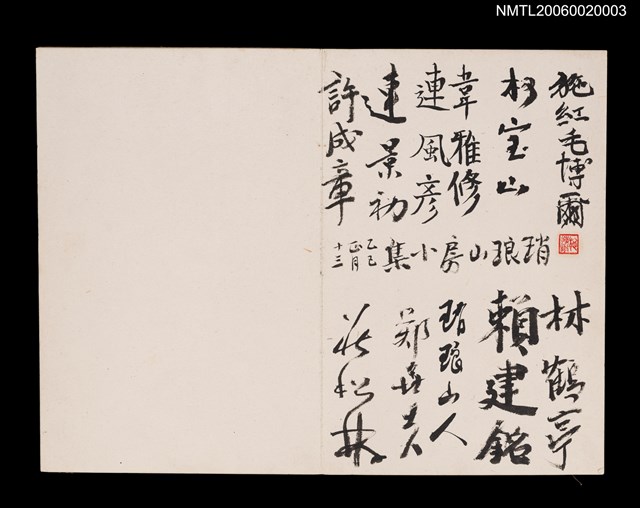 NMTL20060020003
施紅毛博爾
柯宝山
韋雅修
連風彥
連景初
許成章
琑琅山房小集
乙巳
正月
十三
林鶴亭
賴建銘
琑琅山人
鄭喜夫
莊松林